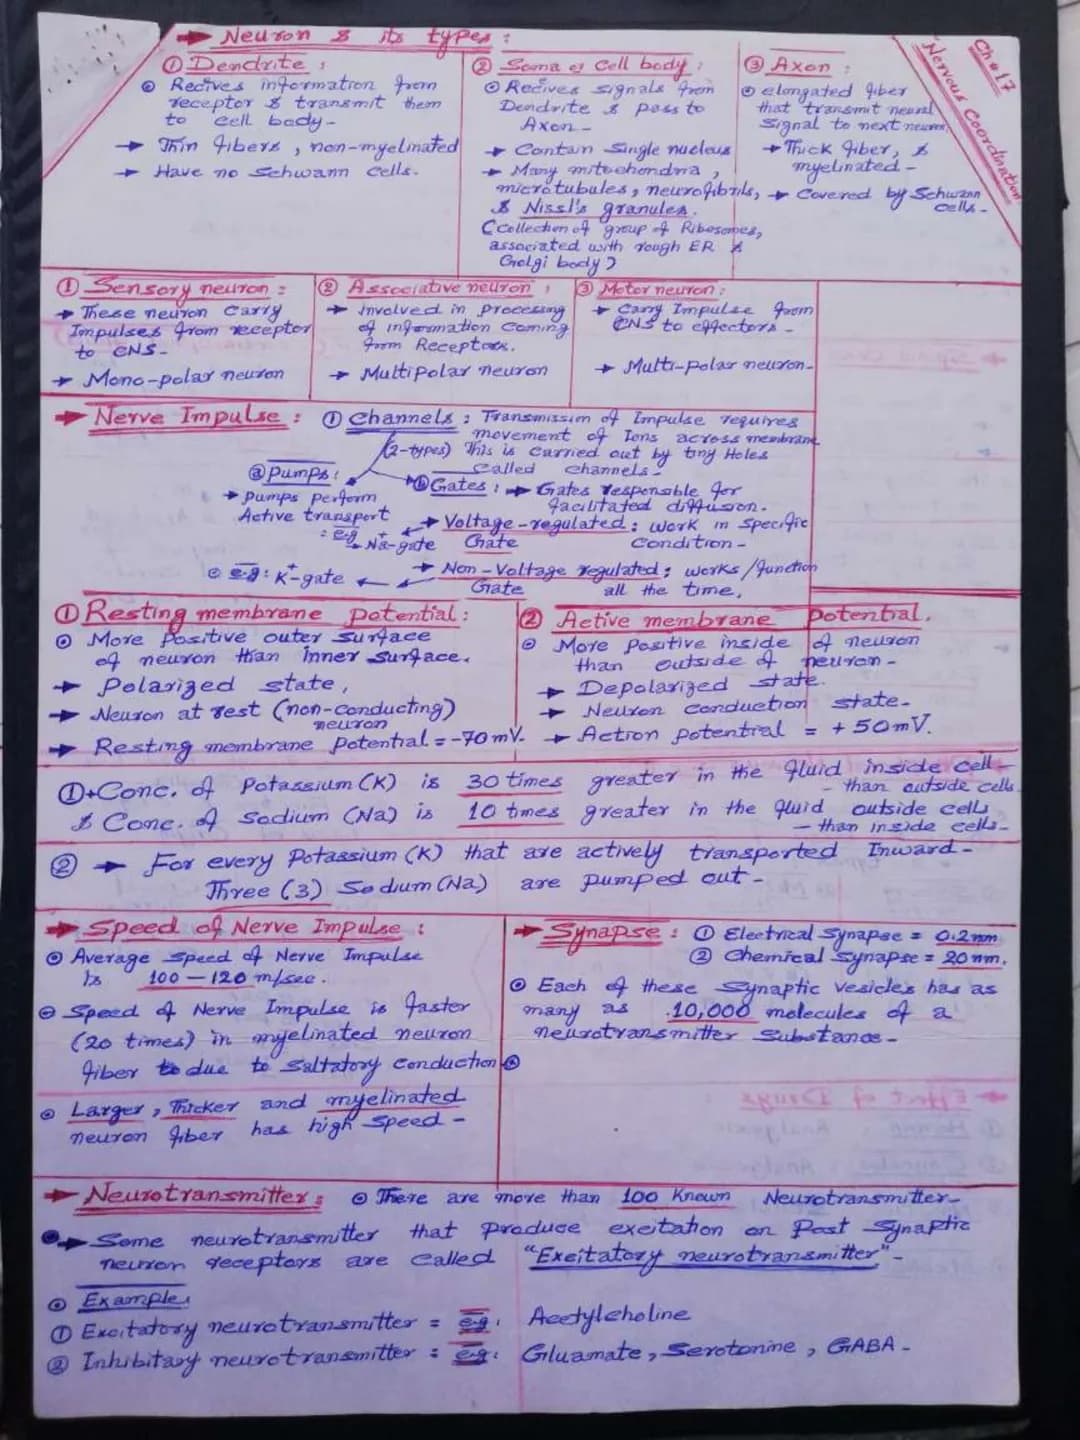 Ch # 17
Nervous Coordination
→ Neuron & its types :
① Dendrite :
⊙ Recives information from
receptor & transmit them
to cell body-
→ Thin fibers, non-myelinated
→ Have no Schwann cells.
② Soma or Cell body :
⊙ Recives signals from
Dendrite & pass to
Axon-
→ Contain Single nucleus
→ Many mitochondria,
microtubules, neurofibrils,
& Nissl's granules.
(Collection of group of Ribosomes,
associated with rough ER &
Golgi body)
③ Axon :
⊙ elongated fiber
that transmit neural
Signal to next neuron
→ Thick fiber, &
myelinated-
→ Covered by Schwann
cells-
① Sensory neuron :
→ These neuron carry
Impulses from receptor
to CNS-
→ Mono-polar neuron
② Associative neuron :
→ Involved in processing
of information coming
from Receptors.
→ Multipolar neuron
③ Motor neuron :
→ Carry Impulse from
CNS to effectors-
→ Multi-polar neuron-
→ Nerve Impulse :
① Channels : Transmission of Impulse requires
movement of Ions across membrane
(2-types) This is carried out by tiny Holes
called channels-
ⓐ Pumps :
→ Pumps perform
Active transport
ⓑ Gates : → Gates responsible for
facilitated diffusion.
→ Voltage-regulated : work in specific
Gate Condition-
: e.g Na⁺-gate
→ Non-Voltage regulated : works/function
Gate all the time,
⊙ e.g: K⁺-gate
① Resting membrane potential :
⊙ More Positive outer surface
of neuron than inner surface.
→ Polarized state,
→ Neuron at rest (non-conducting)
neuron
→ Resting membrane Potential = -70mV.
② Active membrane Potential.
⊙ More Positive inside of neuron
than outside of neuron-
→ Depolarized state.
→ Neuron conduction state-
→ Action potential = +50mV.
①→Conc. of Potassium (K) is 30 times greater in the fluid inside cell-
- than outside cells
& Conc. of Sodium (Na) is 10 times greater in the fluid outside cells
- than inside cells-
② → For every Potassium (K) that are actively transported Inward-
Three (3) Sodium (Na) are pumped out-
→ Speed of Nerve Impulse :
⊙ Average speed of Nerve Impulse
Is 100-120 m/sec.
⊙ Speed of Nerve Impulse is faster
(20 times) in myelinated neuron
fiber to due to Saltatory conduction
⊙ Larger, Thicker and myelinated
neuron fiber has high speed-
→ Synapse : ① Electrical Synapse = 0.2nm
② Chemical Synapse = 20nm.
⊙ Each of these Synaptic vesicles has as
many as 10,000 molecules of a
neurotransmitter Substance-
→ Neurotransmitter : ⊙ There are more than 100 Known Neurotransmitter-
→ Some neurotransmitter that produce excitation on Post Synaptic
neuron receptors are called "Excitatory neurotransmitter"-
⊙ Example
① Excitatory neurotransmitter = e.g. Acetylcholine
② Inhibitary neurotransmitter = e.g. Gluamate, Serotonine, GABA-